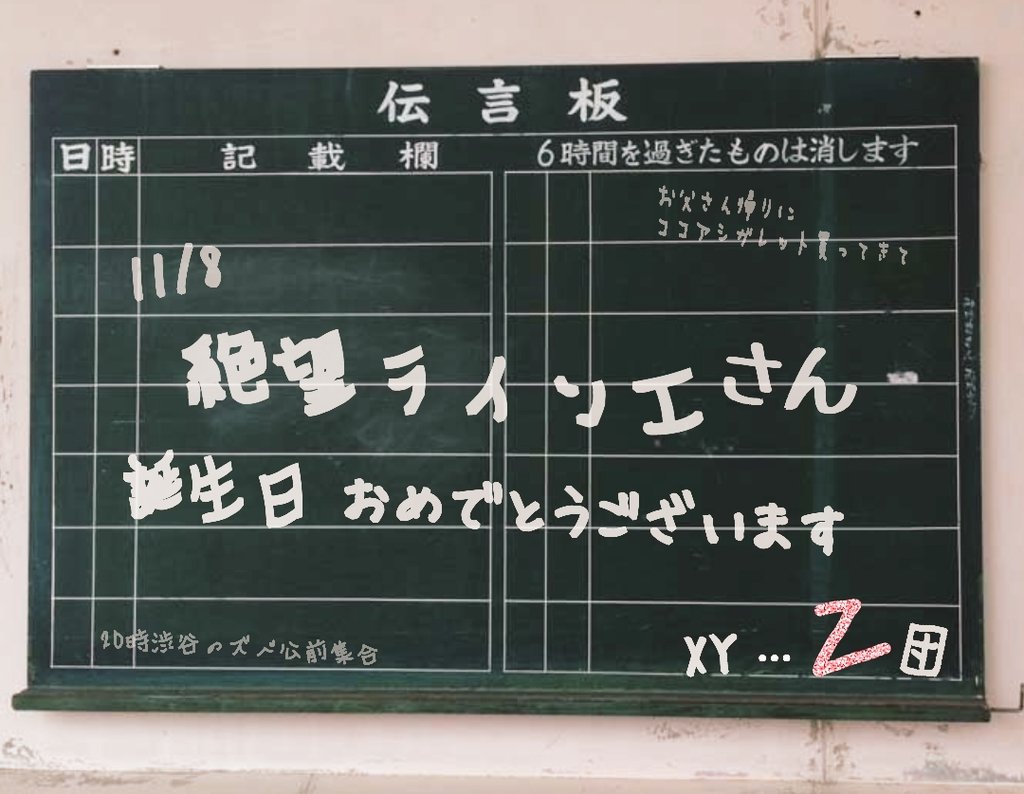 伝言板
日 時 記載欄 6時間を過ぎたものは消します
お父さん帰りに
ココアシガレット買ってきて
11/8
絶望ラインエさん
誕生日おめでとうございます
20時渋谷のズベ公前集合
XY…Z団